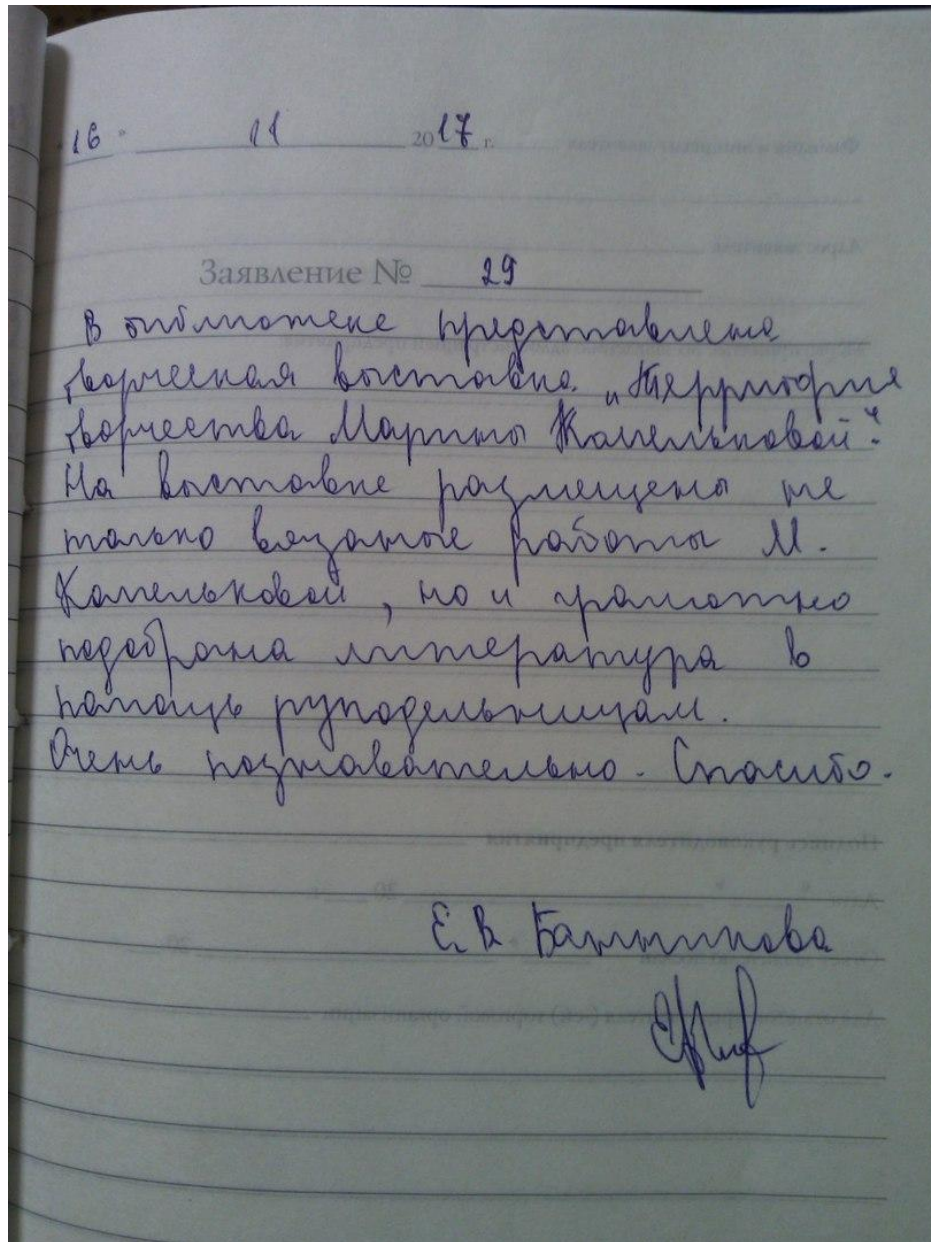 "16" 11 2017 г.
Заявление № 29
В библиотеке представлена
творческая выставка „Территория
творчества Марины Капельковой".
На выставке размещены не
только вязаные работы М.
Капельковой, но и грамотно
подобрана литература в
помощь рукодельницам.
Очень познавательно. Спасибо.
Е. В. Банникова